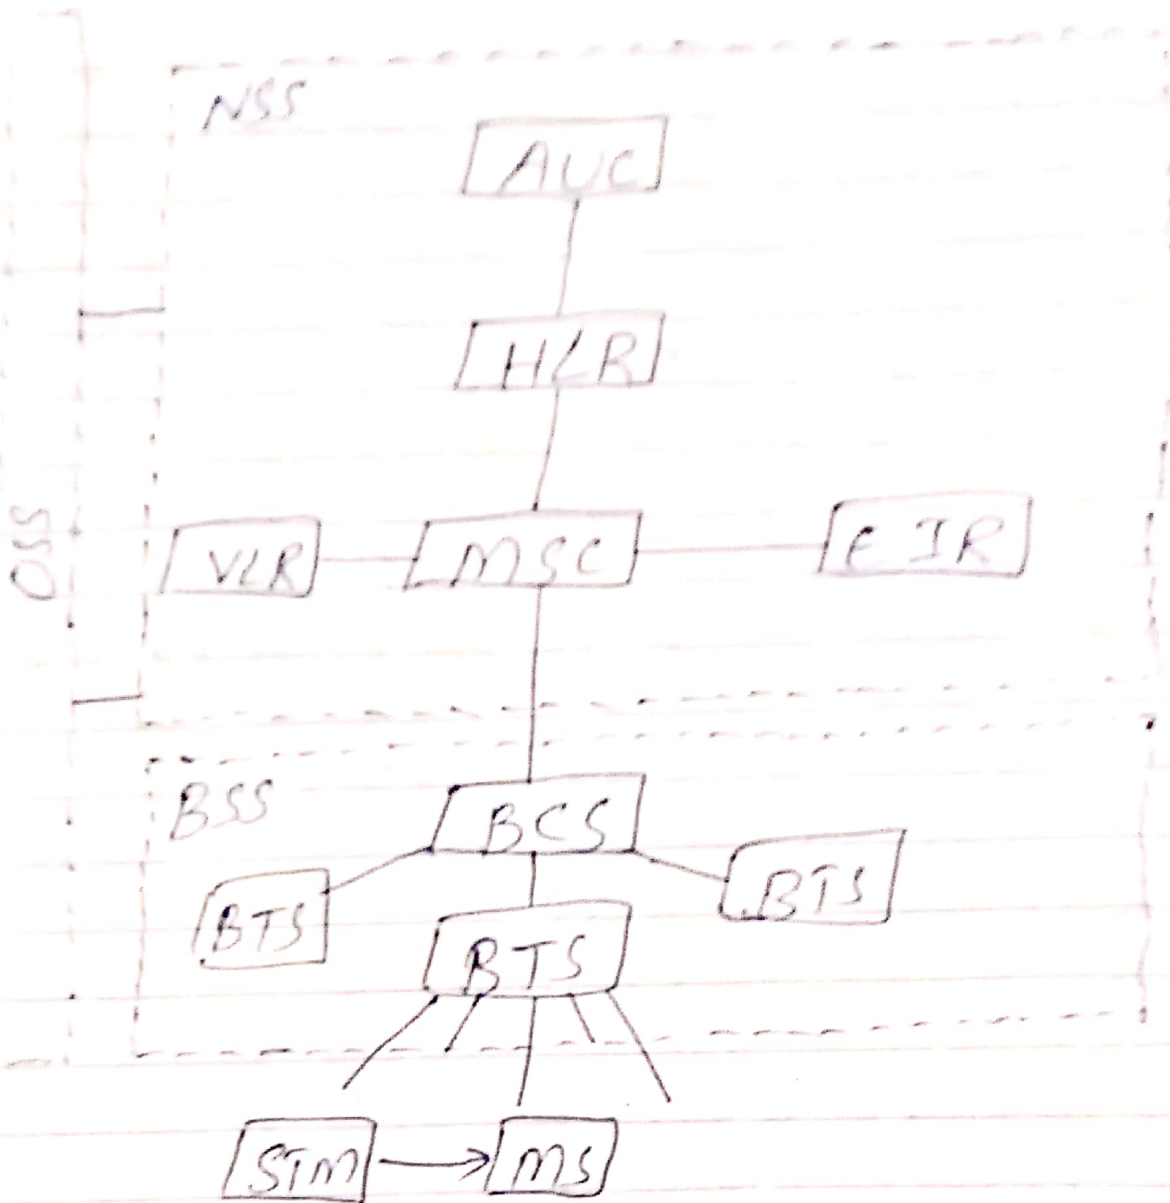 NSS
AUC
HLR
OSS
VLR
MSC
EIR
BSS
BCS
BTS
BTS
BTS
STM
MS